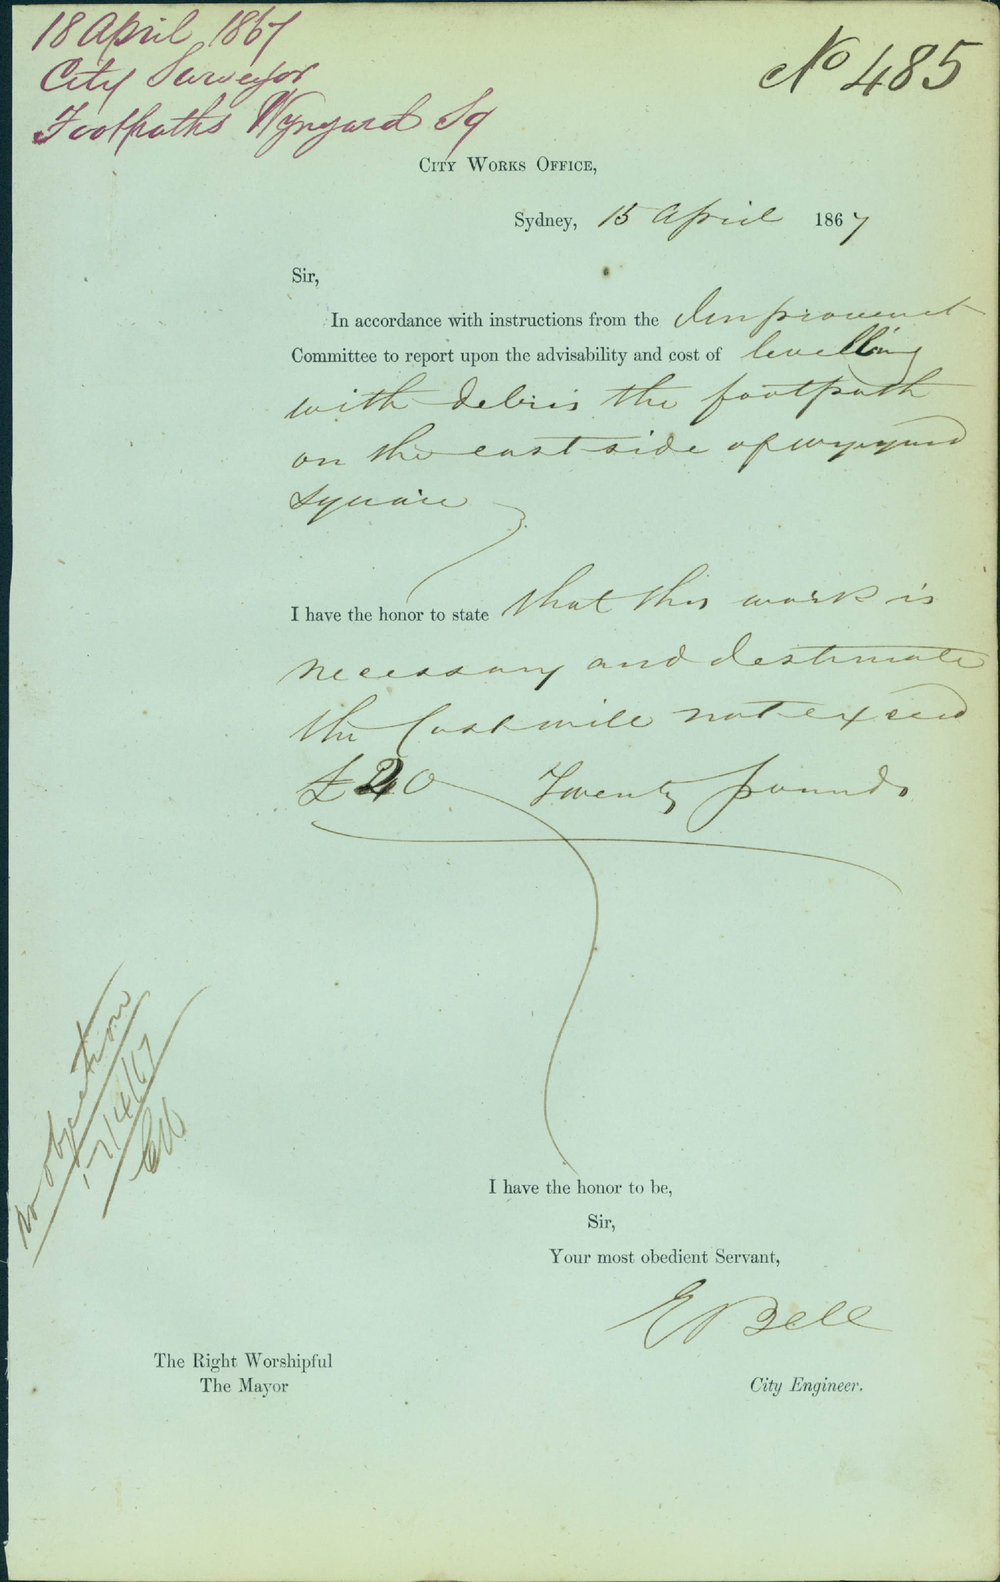 18 April 1867
City Surveyor
Footpaths Wynyard Sq
No 485
City Works Office,
Sydney, 15 April 1867
Sir,
In accordance with instructions from the Improvement
Committee to report upon the advisability and cost of levelling
with debris the footpath
on the east side of wynyard
square
I have the honor to state that this work is
necessary and I estimate
the Cost will not exceed
£20 Twenty pounds
no objection
17/4/67
I have the honor to be,
Sir,
Your most obedient Servant,
E Bell
The Right Worshipful
The Mayor
City Engineer.